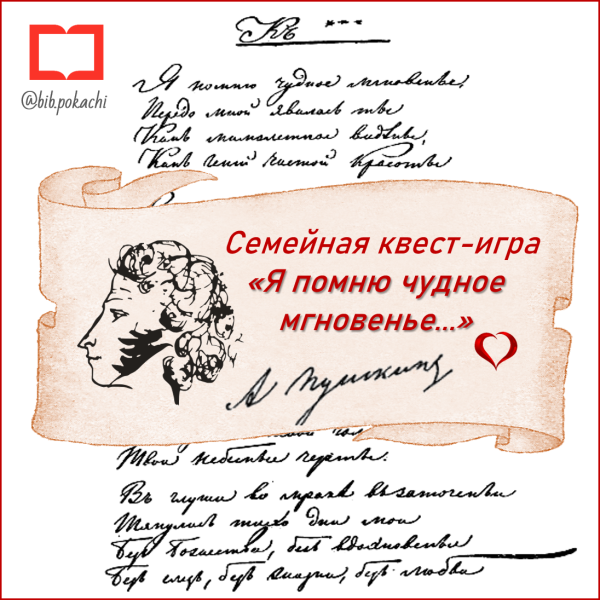 Къ ***
@bib.pokachi
Я помню чудное мгновенье,
Передо мной явилась ты
Какъ мимолетное видѣнье,
Какъ геній чистой красоты
Семейная квест-игра
«Я помню чудное
мгновенье...»
А Пушкинъ
Твои небесныя черты.
Въ глуши во мракѣ заточенья
Тянулись тихо дни мои
Безъ божества, безъ вдохновенья
Безъ слезъ, безъ жизни, безъ любви